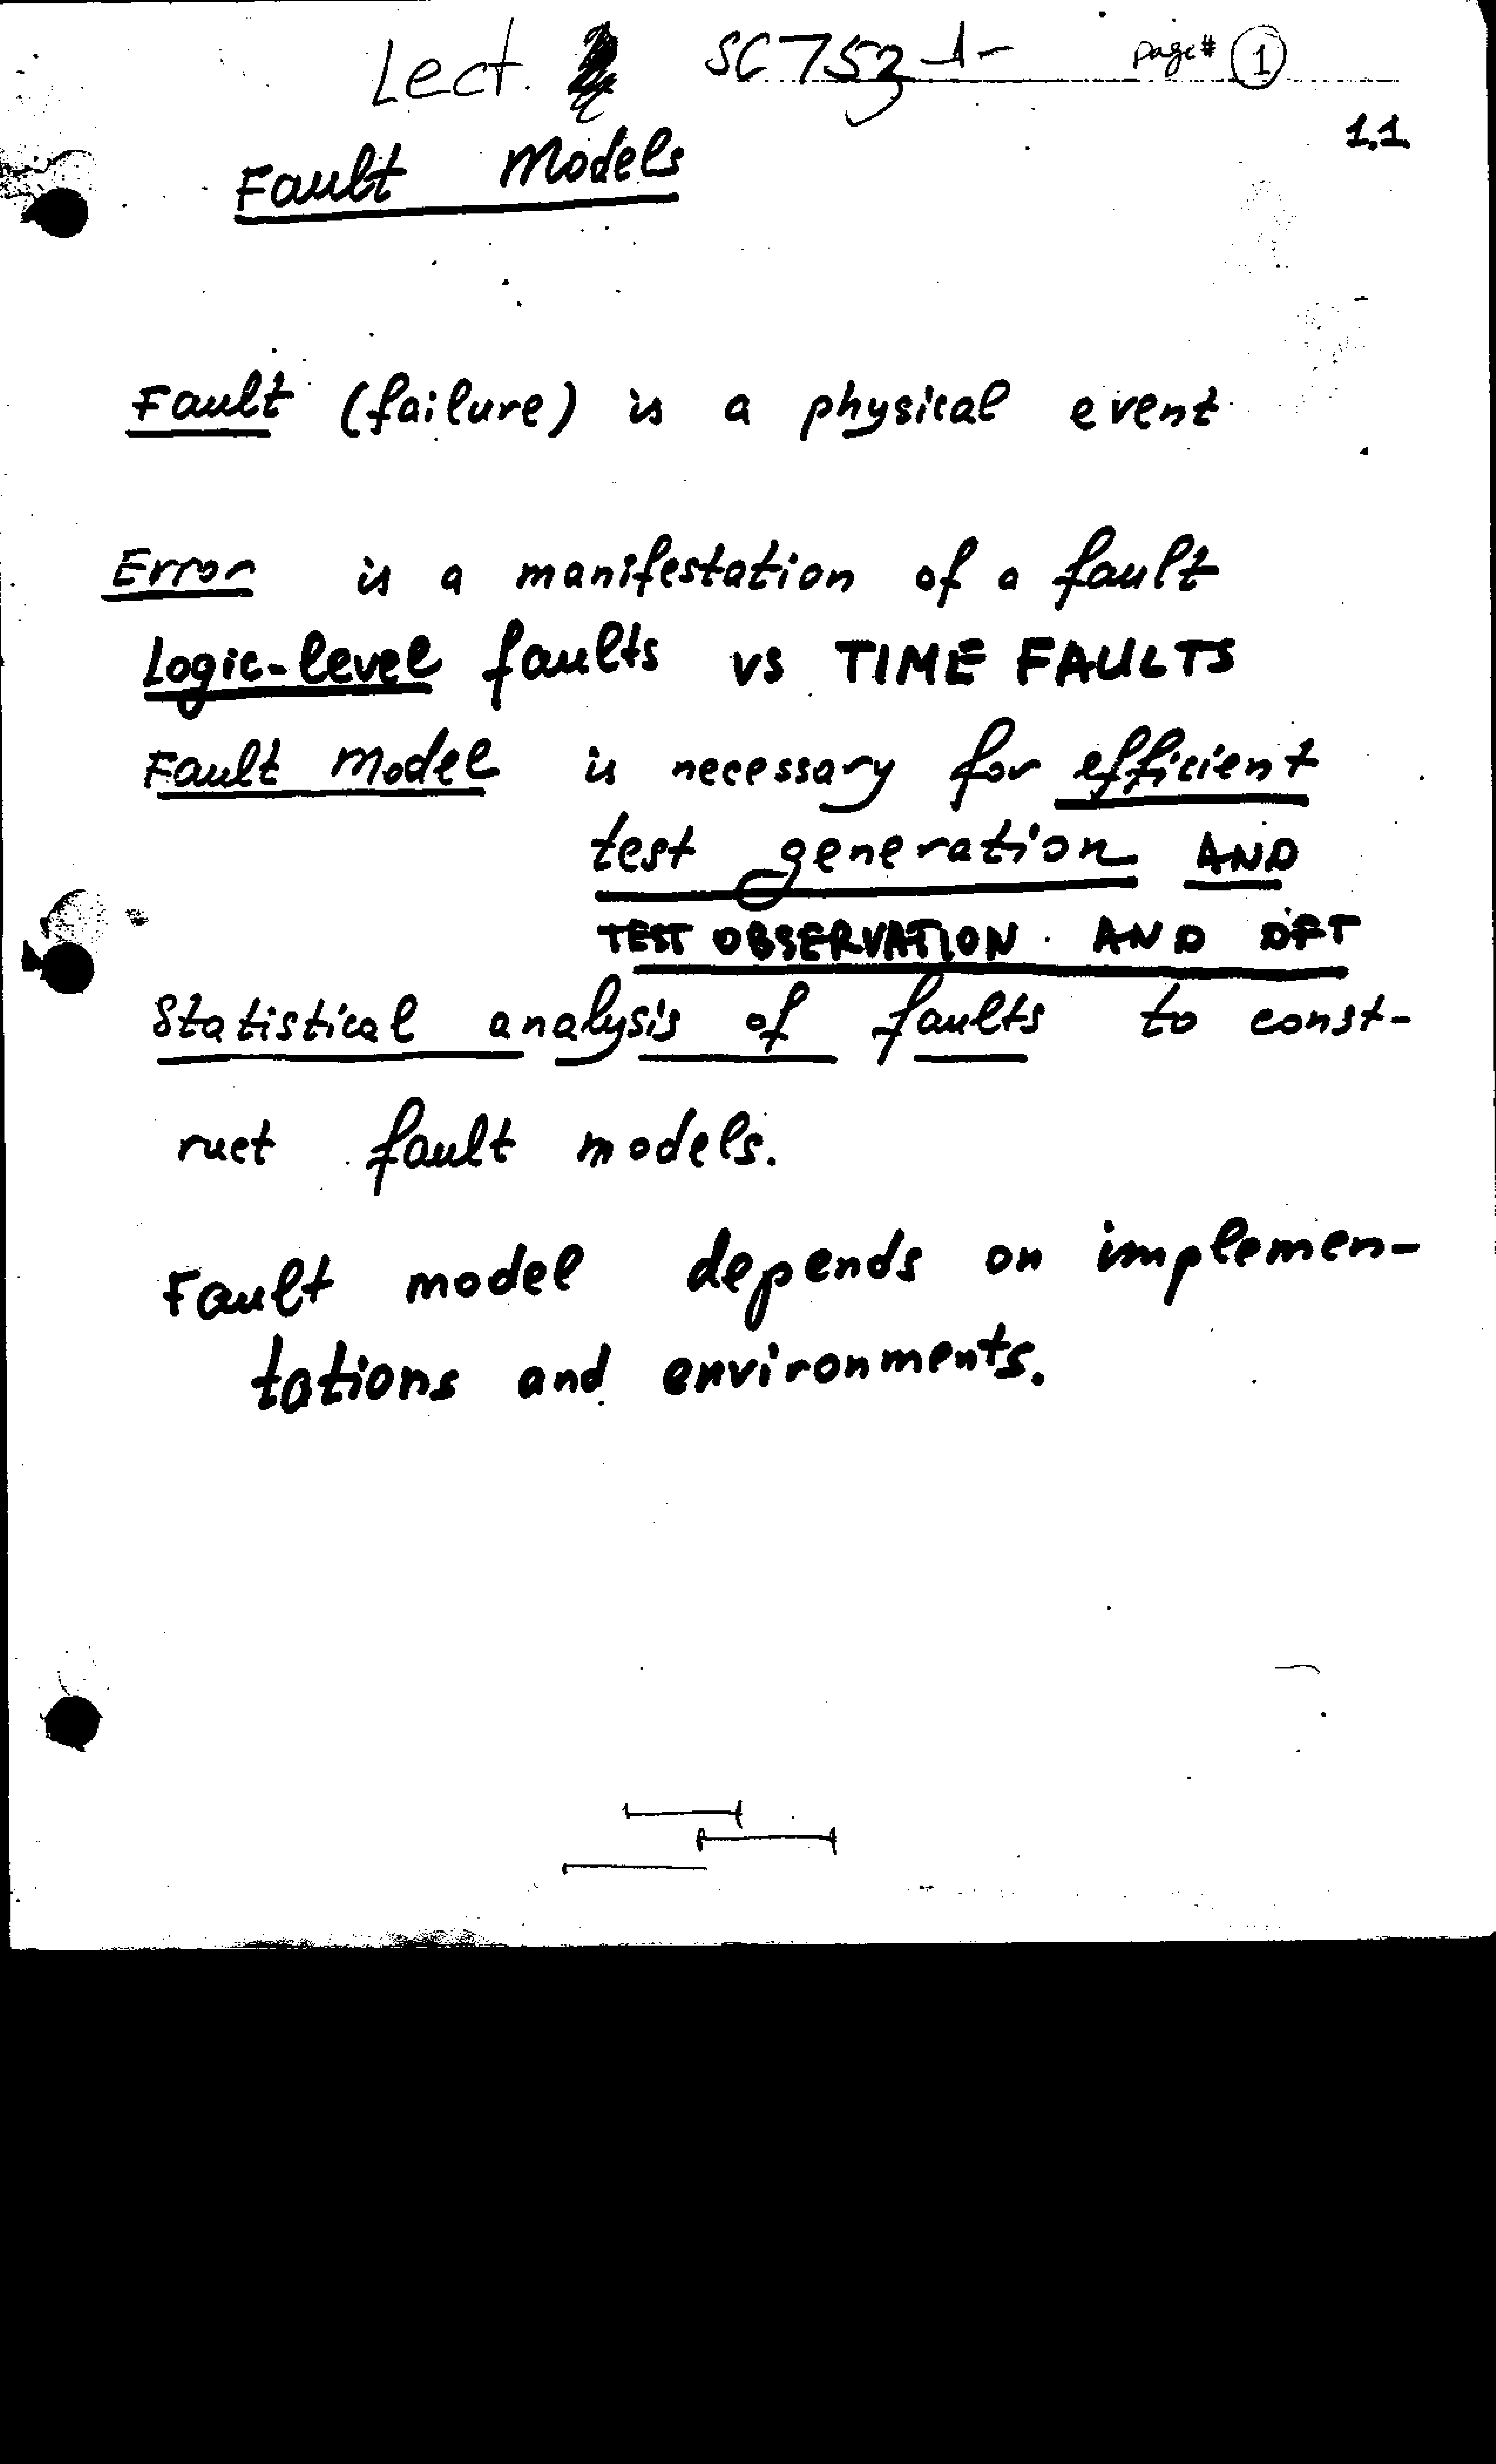 Lect. SC 753 page# 1
1.1
Fault Models
Fault (failure) is a physical event
Error is a manifestation of a fault
Logic-level faults vs TIME FAULTS
Fault Model is necessary for efficient
test generation AND
TEST OBSERVATION AND DFT
Statistical analysis of faults to const-
ruct fault models.
Fault model depends on implemen-
tations and environments.